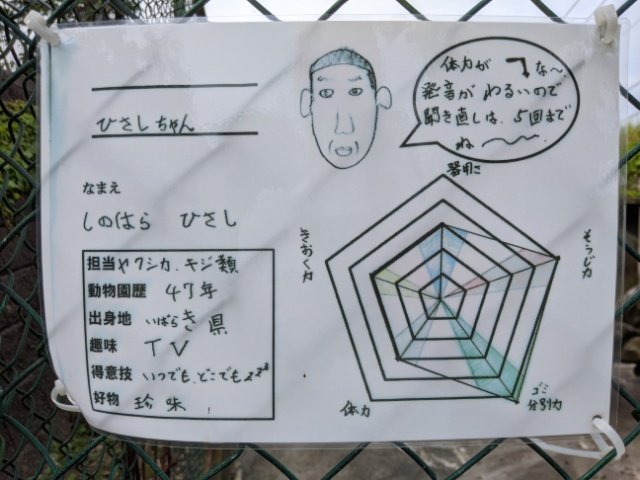 ひさしちゃん
なまえ
しのはら ひさし
担当 ヤクシカ、キジ類
動物園歴 47年
出身地 いばらき県
趣味 TV
得意技 いつでも、どこでも
好物 珍味
体力が ⤵ な〜
発音がわるいので
聞き直しは、5回まで
ね〜
器用さ
そうじ力
ゴミ
分別力
体力
きおく力